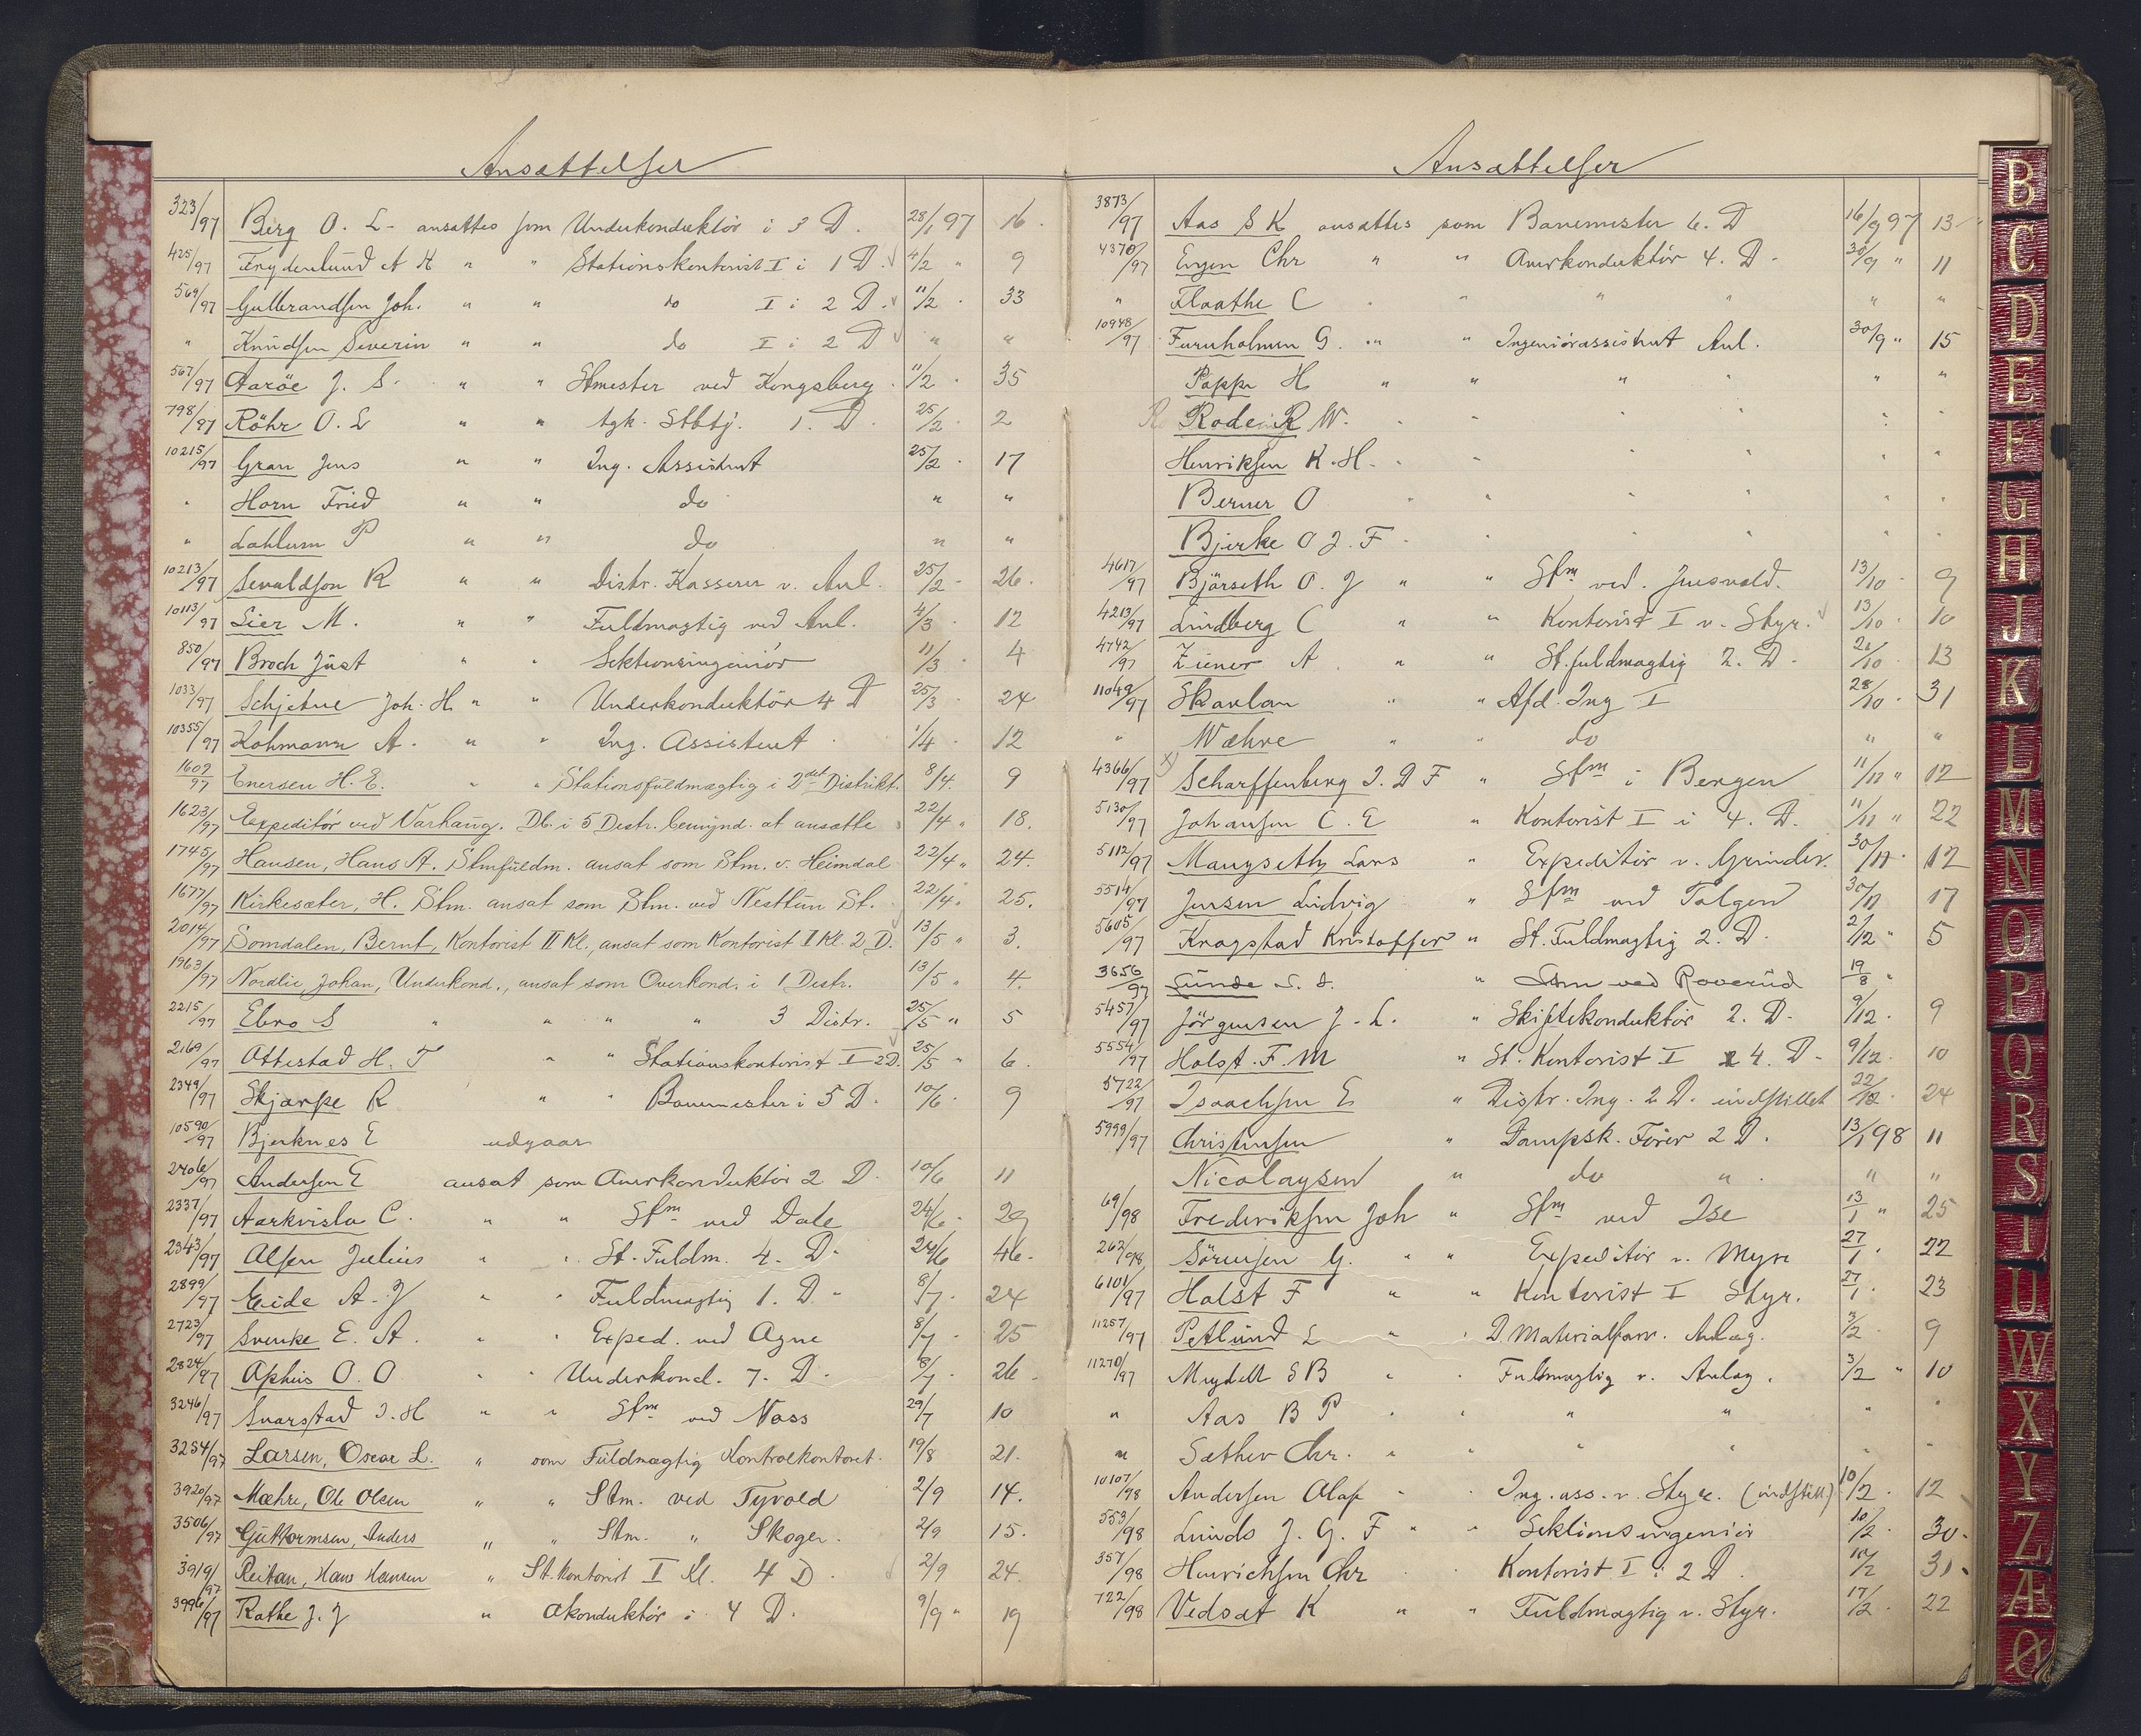 Ansættelser
323/97 Berg O. L. ansattes som Underkonduktör i 3 D. 28/1 97 16.
425/97 Frydenlund A K " " Stationskontorist I i 1 D. 4/2 " 9
569/97 Gulbrandsen Joh. " " do I i 2 D. 11/2 " 33
" Knudsen Severin " " do I i 2 D " "
567/97 Aaröe J. S. " " Stmester ved Kongsberg. 11/2 " 35
798/97 Röhr O. L " " tgk. Stbtj. 1. D. 25/2 " 2
10215/97 Gran Jens " " Ing. Assistent 25/2 " 17
" Horn Fried " " do " "
" Lahlum P " " do " "
10213/97 Sevaldson R " " Distr. Kasserer v. Anl. 25/2 " 26.
10113/97 Lier M. " " Fuldmægtig ved Anl. 4/3 " 12
850/97 Broch Just " " Sektionsingeniör 11/3 " 4
1033/97 Schjetne Joh. H " " Underkonduktör 4 D 25/3 " 24
10355/97 Kohmann A. " " Ing. Assistent 1/4 " 12
1609/97 Enersen H. E. " " Stationsfuldmægtig i 2det Distrikt. 8/4. 9
1623/97 Expeditör ved Varhaug. Db. i 5 Distr. bemynd. at ansætte 22/4 " 18.
1745/97 Hansen, Hans A. Stmfuldm. ansat som Stm. v. Heimdal 22/4 " 24.
1677/97 Kirkesæter, H. Stm. ansat som Stm. ved Nesttun St. 22/4 " 25.
2014/97 Somdalen, Bernt, Kontorist II Kl., ansat som Kontorist I Kl. 2 D. 13/5 " 3.
1963/97 Nordlie, Johan, Underkond., ansat som Overkond. i 1 Distr. 13/5 " 4.
2215/97 Ebro S " " " " 3 Distr. 25/5 " 5
2169/97 Attestad H. T " " Stationskontorist I 2 D. 25/5 " 6.
2349/97 Skjarpe R " " Banemester i 5 D. 10/6 " 9
10590/97 Bjerknes E udgaar
2406/97 Andersen E ansat som Overkonduktör 2 D. 10/6 11
2337/97 Aarkvisla C. " " Stm ved Dale 24/6 " 29
2343/97 Olsen Julius " " St. Fuldm. 4. D. 24/6 46.
2899/97 Eide A. J " " Fuldmægtig 1. D. " 8/7 " 24
2723/97 Svenke E. A. " " Exped. ved Ogne 8/7 " 25
2824/97 Ophus O. O " " Underkond. 7. D. 8/7 " 26.
3246/97 Svarstad J. H " " Stm ved Voss 29/7 10
3254/97 Larsen, Oscar L. " som Fuldmægtig Kontrolkontoret. 19/8 21.
3920/97 Mæhre, Ole Olsen " " Stm. ved Tyvold 2/9 14.
3506/97 Guttormsen, Anders " " Stm. " Skoger. 2/9 15.
3919/97 Reitan, Hans Hansen " St. kontorist I Kl. 4 D. 2/9 24.
3996/97 Rathe J. J " Okonduktör i 4 D. 9/9 " 19
Ansættelser
3873/97 Aas S K ansattes som Banemester 6. D 16/9 97 13
4370/97 Evjen Chr " " Overkonduktör 4. D. 30/9 " 11
" Flaathe C " " " " " "
10948/97 Furuholmen G. " " Ingeniörassistent Anl. 30/9 " 15
Poppe H " " " " " "
Rode R W. " " " " " "
Henriksen K. H. " " " " " "
Berner O " " " " " "
Bjerke O J. F " " " " " "
4617/97 Björseth O. J " " Stm ved. Jusvold. 13/10 " 9
4213/97 Lindberg C " " Kontorist I v. Styr. 13/10 " 10
4742/97 Ziener A. " " St. fuldmægtig 2. D. 21/10 " 13
11049/97 Skavlan " " Afd. Ing I 28/10 " 31
" Wæhre " " do " "
4366/97 x) Scharffenberg J. D F " Stm i Bergen 11/11 " 12
5130/97 Johansen C. E " Kontorist I i 4. D. 11/11 " 22
5112/97 Mangseth, Lars " Expeditör v. Grinder. 30/11 " 12
5514/97 Jensen Ludvig " Stm ved Tolgen 30/11 17
5605/97 Kragstad Kristoffer " St. Fuldmægtig 2. D. 2/12 " 5
3656/97 Sunde S. S. " Stm ved Roverud 19/8 "
5457/97 Jörgensen J. L. " Skiftekonduktör 2. D. 9/12 " 9
5554/97 Holst. F. M " St. Kontorist I 4. D. 9/12 " 10
5722/97 Isaachsen E " Distr. Ing. 2 D. indstillet 22/12 " 24
5999/97 Christensen " Dampsk. Förer 2 D. 13/1 98 11
Nicolaysen " do " " "
69/98 Frederiksen Joh " Stm ved Ise 13/1 " 25
262/98 Sörensen G. " " Expeditör v. Mysen 27/1 " 22
6101/97 Holst F " " Kontorist I Styr. 27/1 " 23
11257/97 Petlund L " " D. Materialforv. Anlæg. 3/2 " 9
11270/97 Mugdell S B " " Fuldmægtig v. Anlæg. 3/2 " 10
" Aas B P " " " " " "
" Sæther Chr. " " " " " "
10107/98 Andersen Olaf " " Ing. ass. v. Styr. (indstill) 10/2 " 12
553/98 Lunde J. G. F " " Sektionsingeniör 10/2 " 30.
357/98 Henrichsen Chr " " Kontorist I i 2 D. 10/2 31.
722/98 Vedsat K " " Fuldmægtig v. Styr. 17/2 " 22
B
C
D
E
F
G
H
J
K
L
M
N
O
P
Q
R
S
T
U
W
X
Y
Z
Æ
Ø